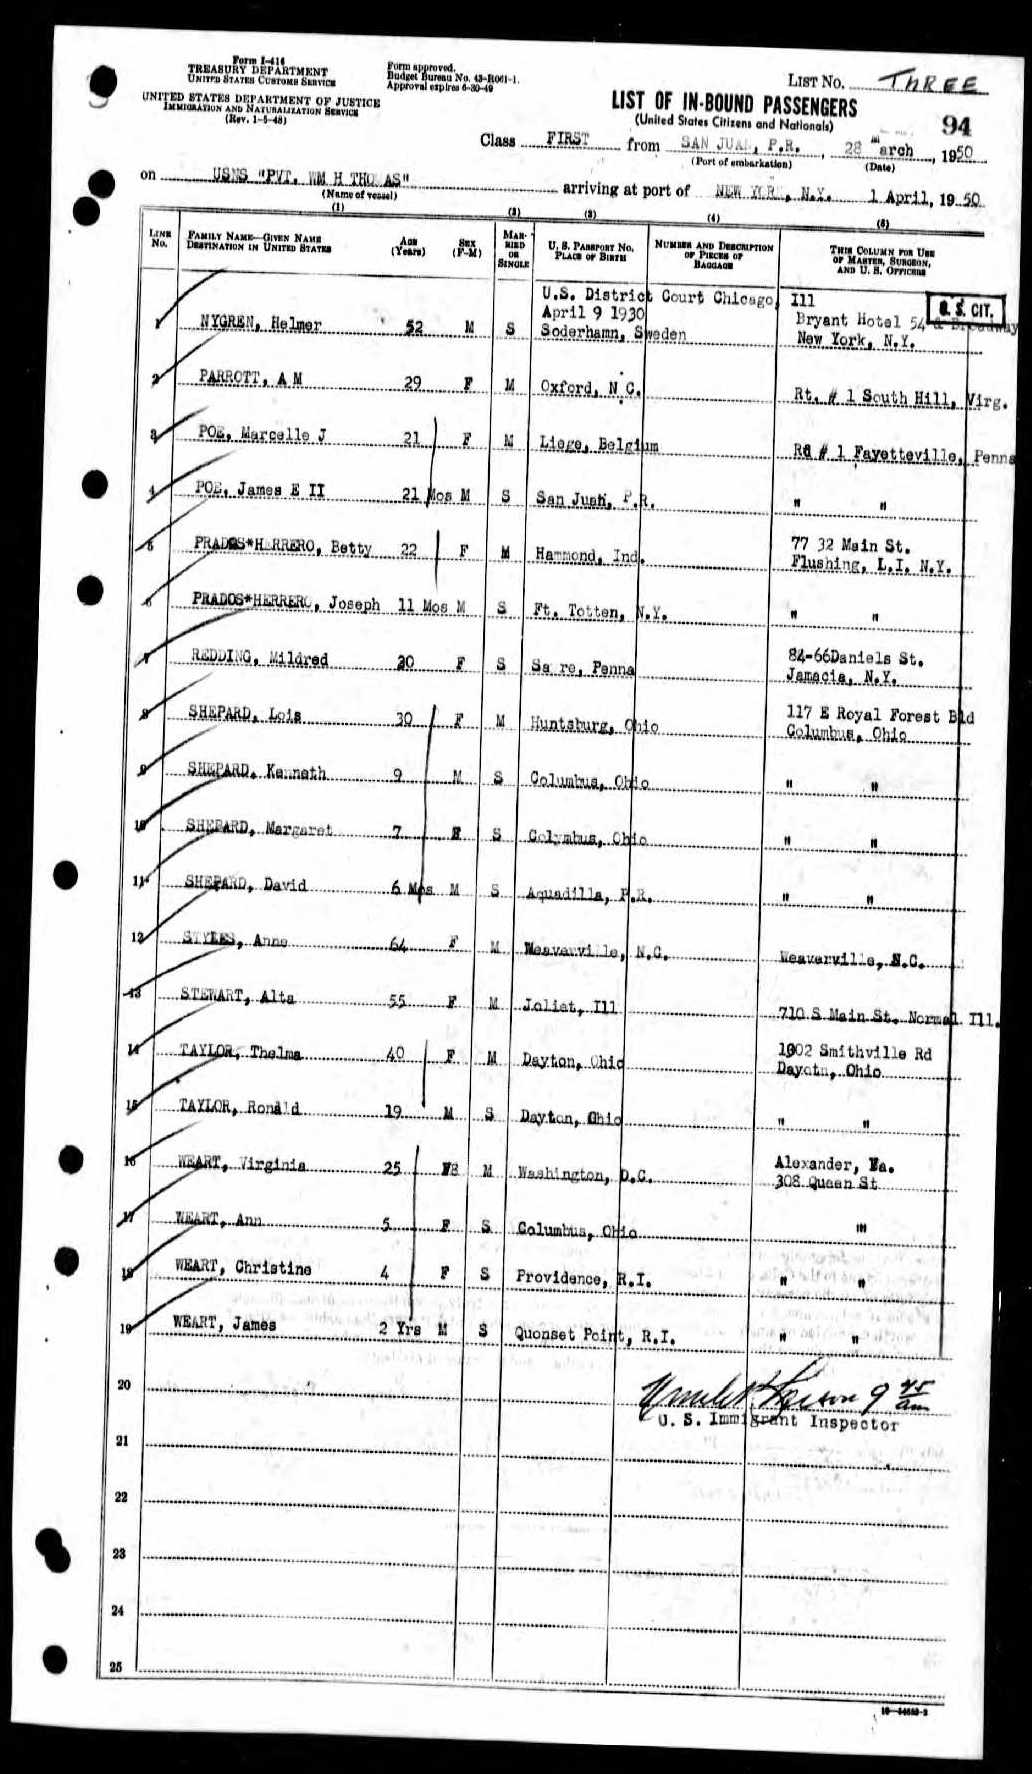 Form I-416
TREASURY DEPARTMENT
UNITED STATES CUSTOMS SERVICE
UNITED STATES DEPARTMENT OF JUSTICE
IMMIGRATION AND NATURALIZATION SERVICE
(Rev. 1-5-48)
Form approved.
Budget Bureau No. 43-R061-1.
Approval expires 6-30-49
LIST NO. THREE
LIST OF IN-BOUND PASSENGERS
(United States Citizens and Nationals)
94
Class FIRST from SAN JUAN, P.R., 28 March, 1950
(Port of embarkation) (Date)
on USNS "PVT. WM H THOMAS" arriving at port of NEW YORK, N.Y. 1 April, 1950
(Name of vessel)
(1) (2) (3) (4) (5)
LINE NO. FAMILY NAME—GIVEN NAME DESTINATION IN UNITED STATES AGE (Years) SEX (F-M) MARRIED OR SINGLE U. S. PASSPORT NO. PLACE OF BIRTH NUMBER AND DESCRIPTION OF PIECES OF BAGGAGE THIS COLUMN FOR USE OF MASTER, SURGEON, AND U. S. OFFICERS
U.S. District Court Chicago, Ill
April 9 1930 U. S. CIT.
1 NYGREN, Helmer 52 M S Soderhamn, Sweden Bryant Hotel 54 & Broadway
New York, N.Y.
2 PARROTT, A M 29 F M Oxford, N.C. Rt. # 1 South Hill, Virg.
3 POE, Marcelle J 21 F M Liege, Belgium Rd # 1 Fayetteville, Penna
4 POE, James E II 21 Mos M S San Juan, P.R. " "
5 PRADOS*HERRERO, Betty 22 F M Hammond, Ind. 77 32 Main St.
Flushing, L.I. N.Y.
6 PRADOS*HERRERO, Joseph 11 Mos M S Ft. Totten, N.Y. " "
7 REDDING, Mildred 20 F S Sayre, Penna 84-66Daniels St.
Jamacia, N.Y.
8 SHEPARD, Lois 30 F M Huntsburg, Ohio 117 E Royal Forest Bld
Columbus, Ohio
9 SHEPARD, Kenneth 9 M S Columbus, Ohio " "
10 SHEPARD, Margaret 7 F S Colymbus, Ohio " "
11 SHEPARD, David 6 Mos M S Aquadilla, P.R. " "
12 STYLES, Anne 64 F M Weaverville, N.C. Weaverville, N.C.
13 STEWART, Alta 55 F M Joliet, Ill 710 S Main St. Normal Ill.
14 TAYLOR, Thelma 40 F M Dayton, Ohio 1002 Smithville Rd
Dayotn, Ohio
15 TAYLOR, Ronald 19 M S Dayton, Ohio " "
16 WEART, Virginia 25 F M Washington, D.C. Alexander, Va.
308 Queen St
17 WEART, Ann 5 F S Columbus, Ohio "
18 WEART, Christine 4 F S Providence, R.I. " "
19 WEART, James 2 Yrs M S Quonset Point, R.I. " "
20 9 45 am
U. S. Immigrant Inspector
21
22
23
24
25